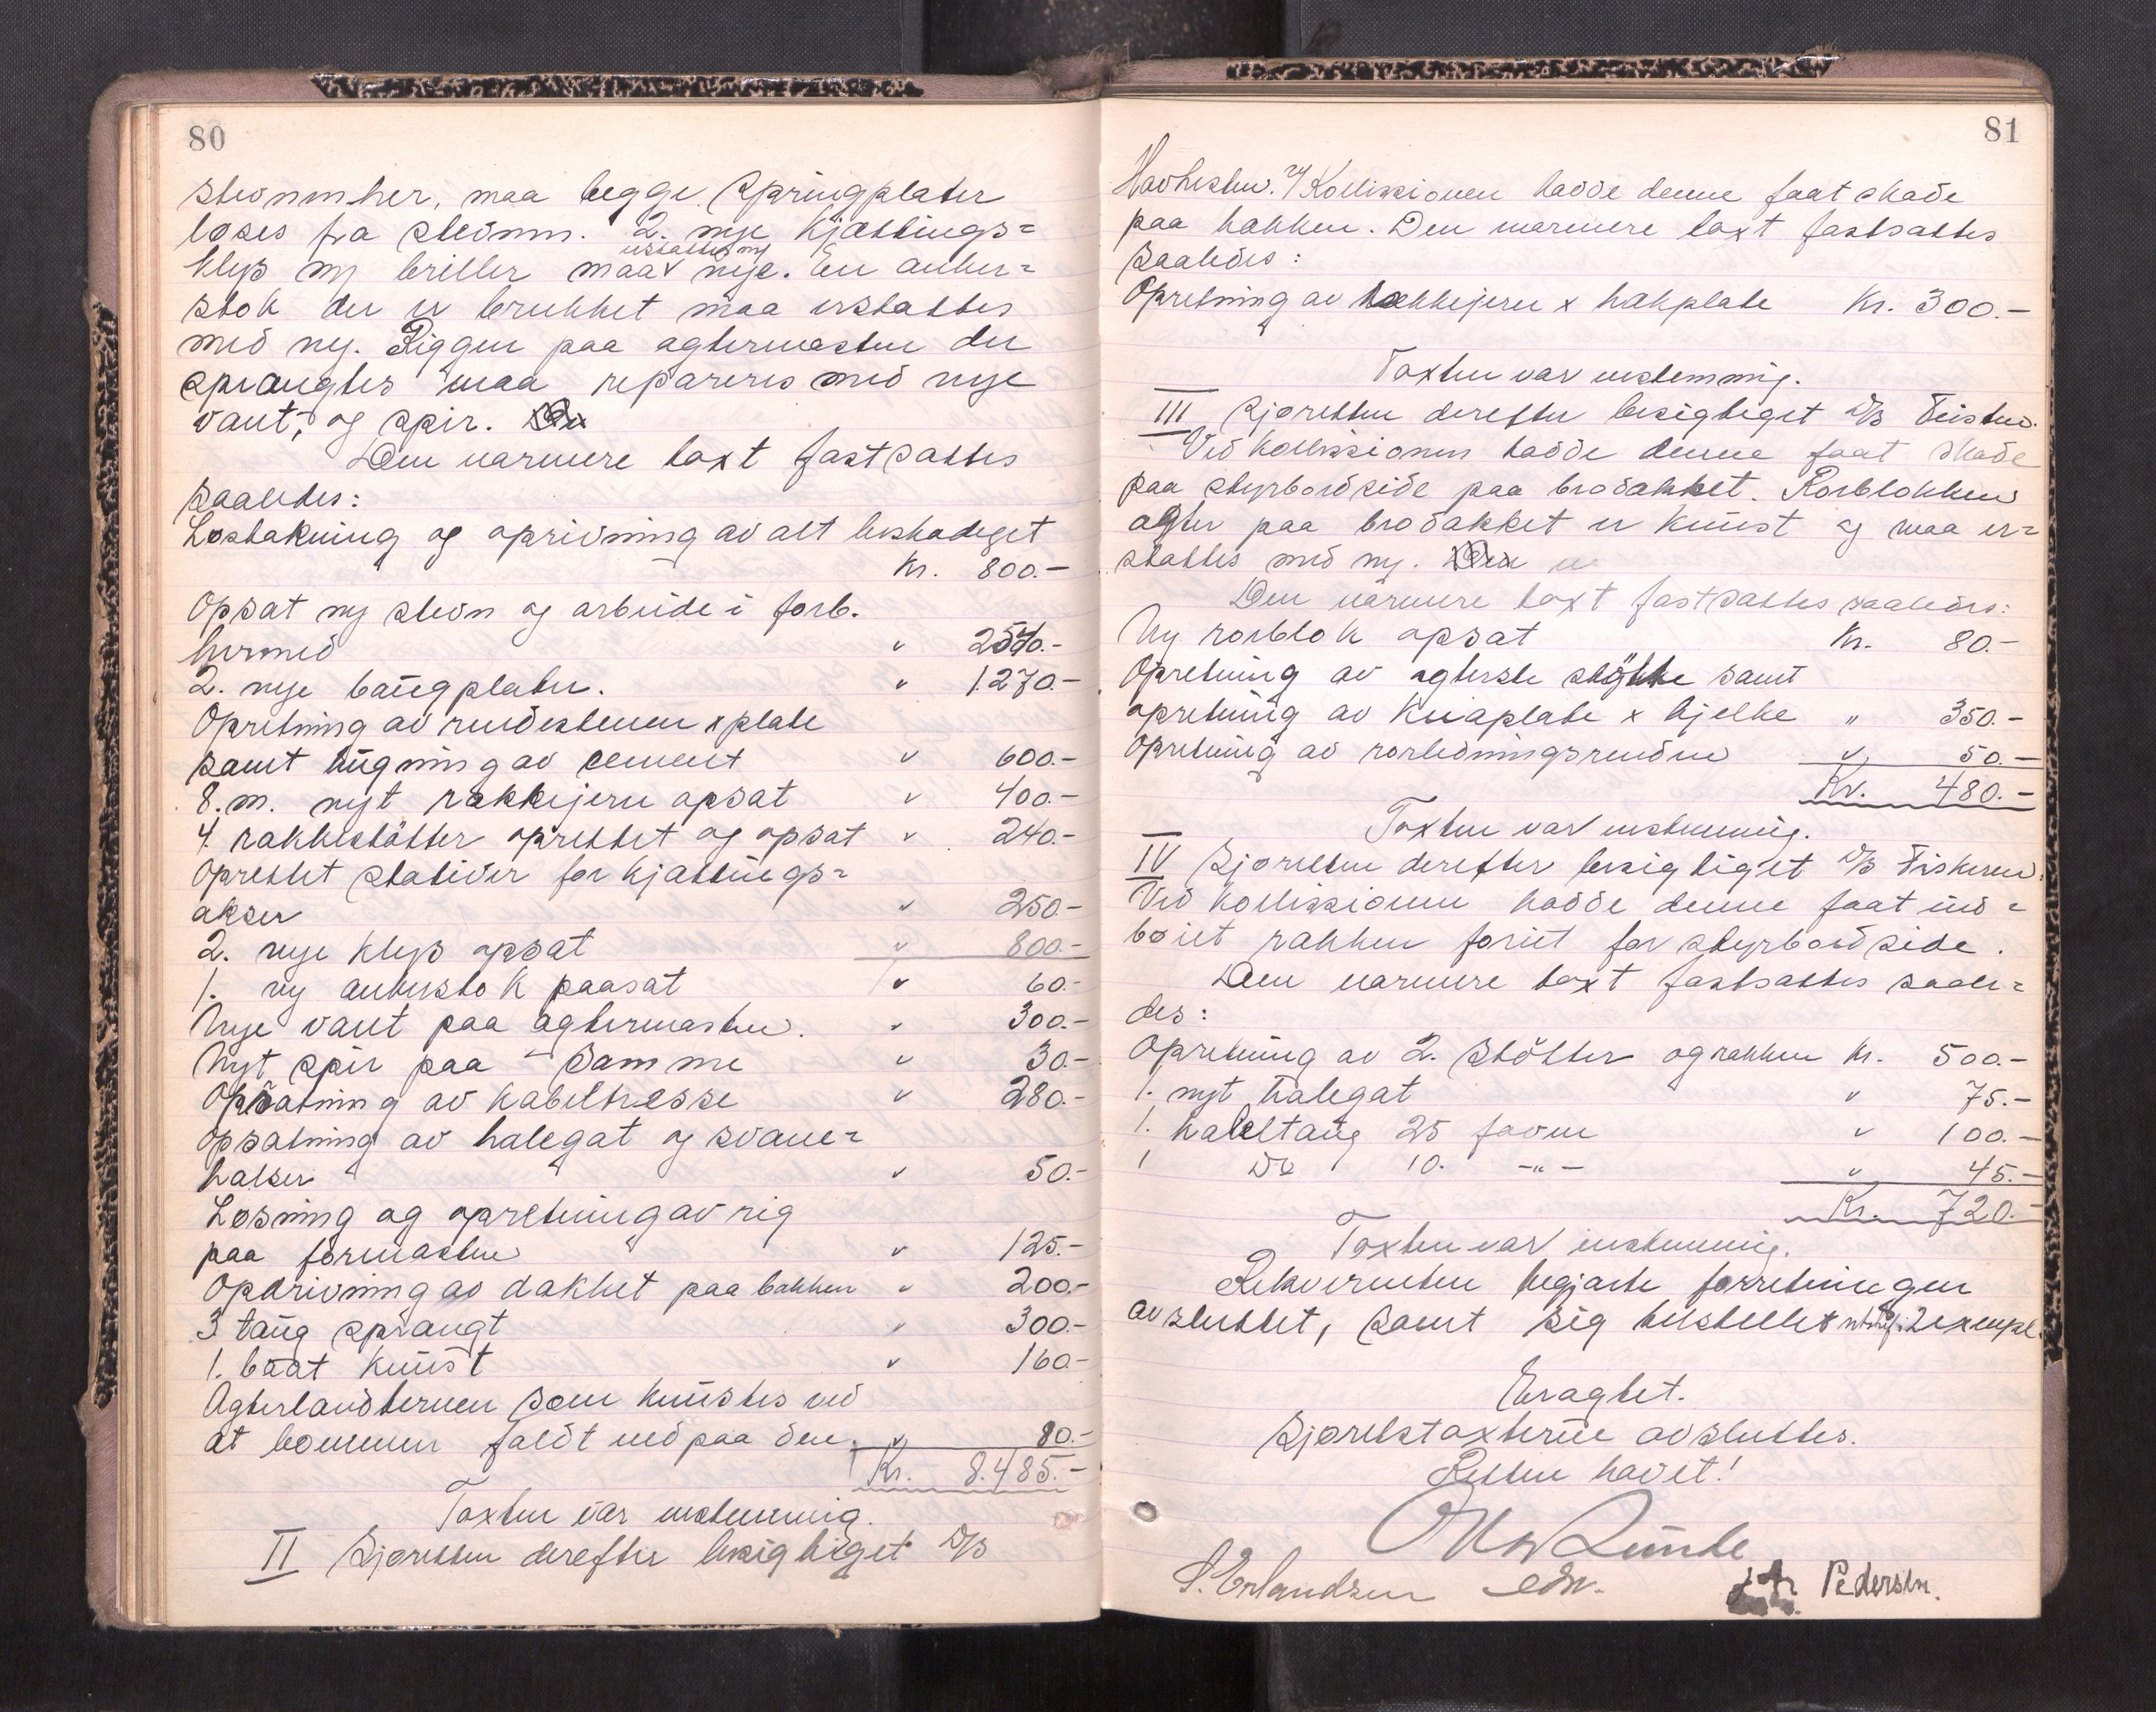 80
stevnen her, maa begge springplater
løses fra stevnen. 2. nye Kjættings=
erstattes m/
klys m/ briller maa nye. En anker=
stok der er brukket maa erstattes
med ny. Riggen paa agtermasten der
sprængtes maa repareres med nye
vant, og spir. Den
Den nærmere taxt fastsattes
saaledes:
Løstakning og oprivning av alt beskadeget
Kr. 800.-
Opsat ny stevn og arbeide i forb.
hermed " 2540.-
2. nye baugplater. " 1270.-
Opretning av rendestenen x plate
samt hugning av cement " 600.-
8. m. nyt rækkejern opsat " 400.-
4. rækkestötter oprettet og opsat " 240.-
Oprettet stativer for kjættings=
akser " 250.-
2. nye klys opsat " 800.-
1. ny ankerstok paasat " 60.-
Nye vant paa agtermasten. " 300.-
Nyt spir paa - samme " 30.-
Opsatning av kabeltresse " 280.-
Opsatning av halegat og svane=
halser " 50.-
Løsning og opretning av rig
paa formasten " 125.-
Opdrivning av dækket paa bakken " 200.-
3 taug sprængt " 300.-
1. baat knust " 160.-
Agterlandternen som knustes ved
at bommen faldt ned paa den " 80.-
Kr. 8.485.-
Taxten var enstemmig.
II Sjøretten derefter besigtiget D/S
81
Havhesten. V/ Kollissionen hadde denne faat skade
paa hækken. Den nærmere taxt fastsattes
saaledes:
Opretning av hækkejern x hækplate Kr. 300.-
Taxten var enstemmig.
III Sjøretten derefter besigtiget D/S Teisten.
Ved kollissionen hadde denne faat skade
paa styrbordside paa brodækket. Rorblokken
agter paa brodækket er knust og maa er=
stattes med ny. Den
Den nærmere taxt fastsattes saaledes:
Ny rorblok opsat Kr. 80.-
Opretning av agterste støtte samt
opretning av knæplate x bjelke " 350.-
Opretning av rorledningsrenden " 50.-
Kr. 480.-
Taxten var enstemmig.
IV Sjøretten derefter besigtiget D/S Fiskeren.
Ved kollissionen hadde denne faat ind=
bøiet rækken forut for styrbord side.
Den nærmere taxt fastsattes saale=
des:
Opretning av 2. stötter og rækken Kr. 500.-
1. nyt halegat " 75.-
1. kabeltaug 25 favne " 100.-
1 Do 10. -"- " 45.-
Kr. 720.-
Taxten var enstemmig.
Rekvirenten begjærte forretningen
avsluttet, samt sig tilstillet utskr. i 2 exempl.
Eragtet.
Sjøretstaxterne avsluttes.
Retten hævet!
Otto Lunde
S. Erlandsen edv. Pedersen.